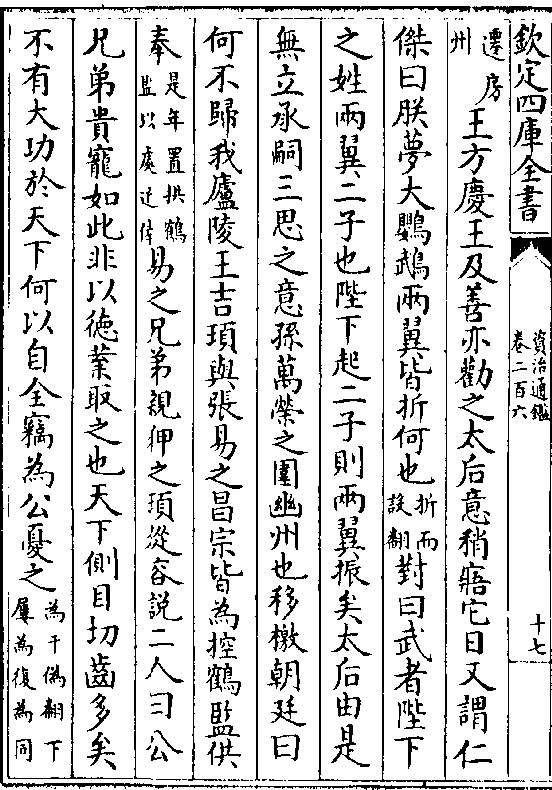 欽定四庫全書
資治通鑑
卷二百六
十七
遷房
州
王方慶王及善亦勸之太后意稍寤它日又謂仁
傑曰朕夢大鸚鵡兩翼皆折何也
折而
設翻
對曰武者陛下
之姓兩翼二子也陛下起二子則兩翼振矣太后由是
無立承嗣三思之意孫萬榮之圍幽州也移檄朝廷曰
何不歸我廬陵王吉頊與張易之昌宗皆為控鶴監供
奉
是年置控鶴
監以處近倖
易之兄弟親狎之頊從容説二人曰公
兄弟貴寵如此非以徳業取之也天下側目切齒多矣
不有大功於天下何以自全竊為公憂之
為于偽翻下
屢為復為同